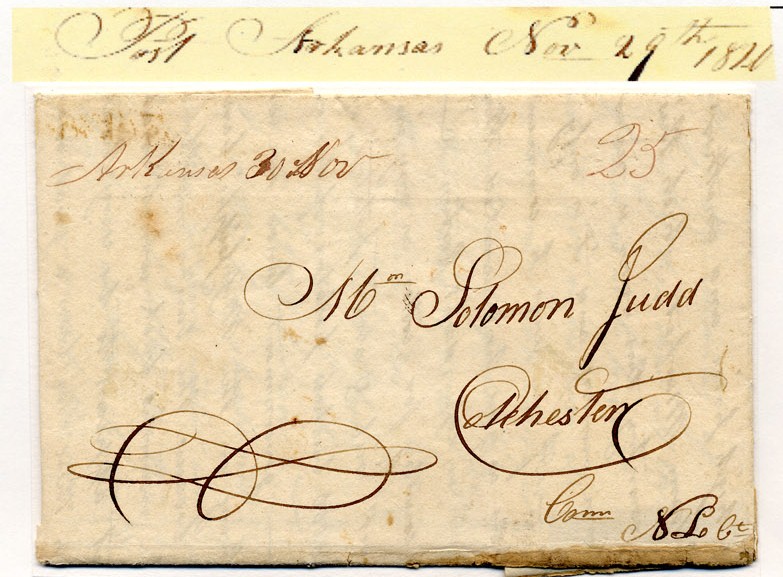 Post Arkansas Nov 29th 1820
Arkansas 30 Nov 25
Mr Solomon Judd
Colchester
Conn
N Lo Ct